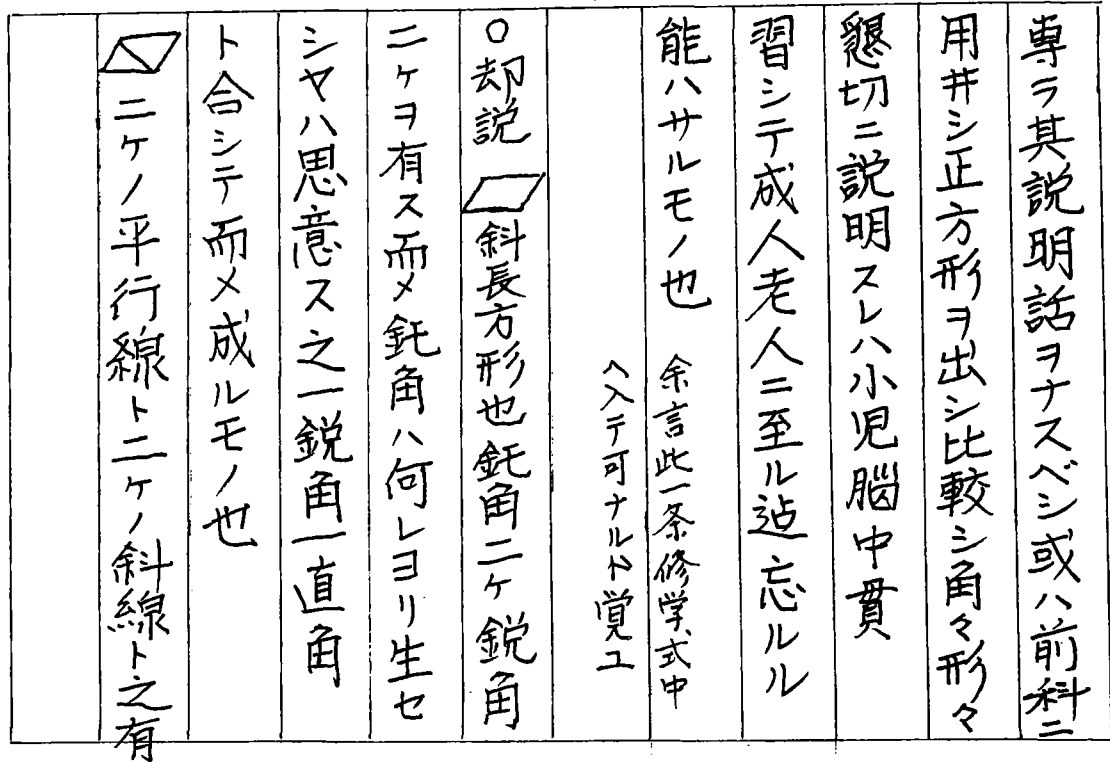 専ラ其説明話ヲナスベシ或ハ前科ニ
用井シ正方形ヲ出シ比較シ角々形々
懇切ニ説明スレハ小児脳中貫
習シテ成人老人ニ至ル迠忘ルル
能ハサルモノ也 余言此一条修学式中
ヘ入テ可ナルト覚ユ
○却説 斜長方形也鈍角二ケ鋭角
二ケヲ有ス而メ鈍角ハ何レヨリ生セ
シヤハ思意ス之一鋭角一直角
ト合シテ而メ成ルモノ也
二ケノ平行線ト二ケノ斜線ト之有